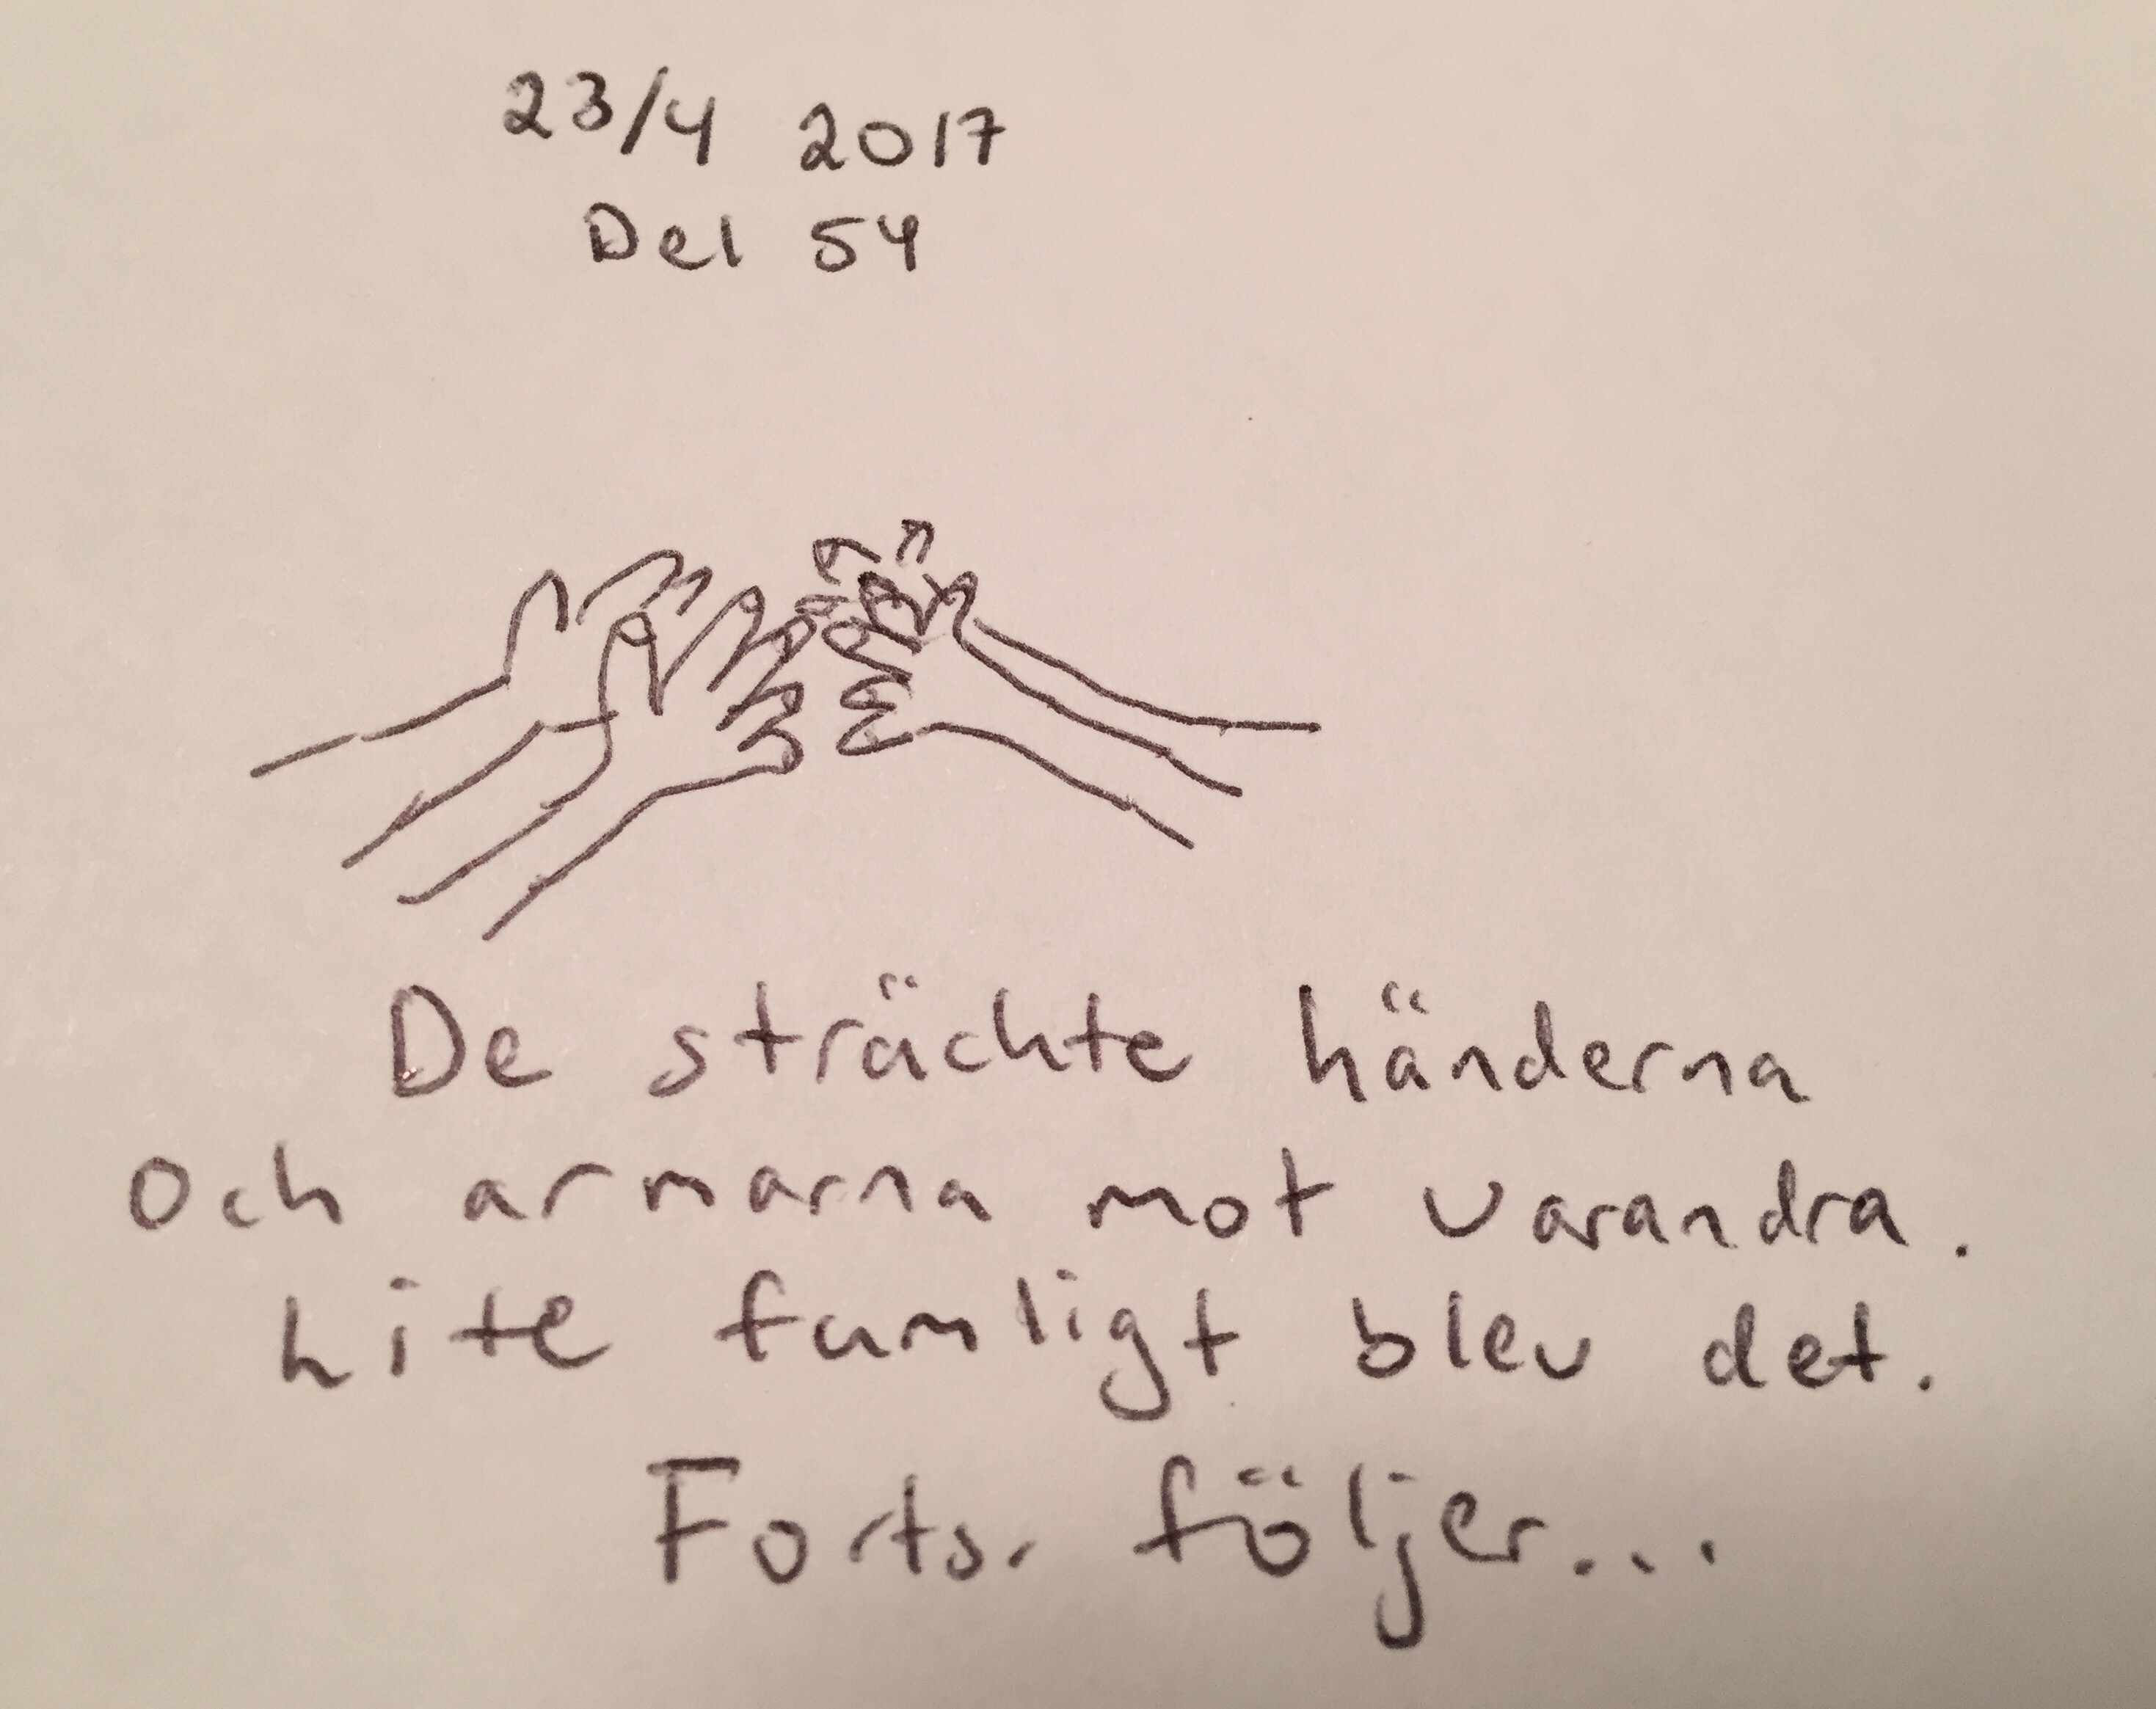 23/4 2017
Del 54
De sträckte händerna
Och armarna mot varandra.
Lite famligt blev det.
Forts. följer...